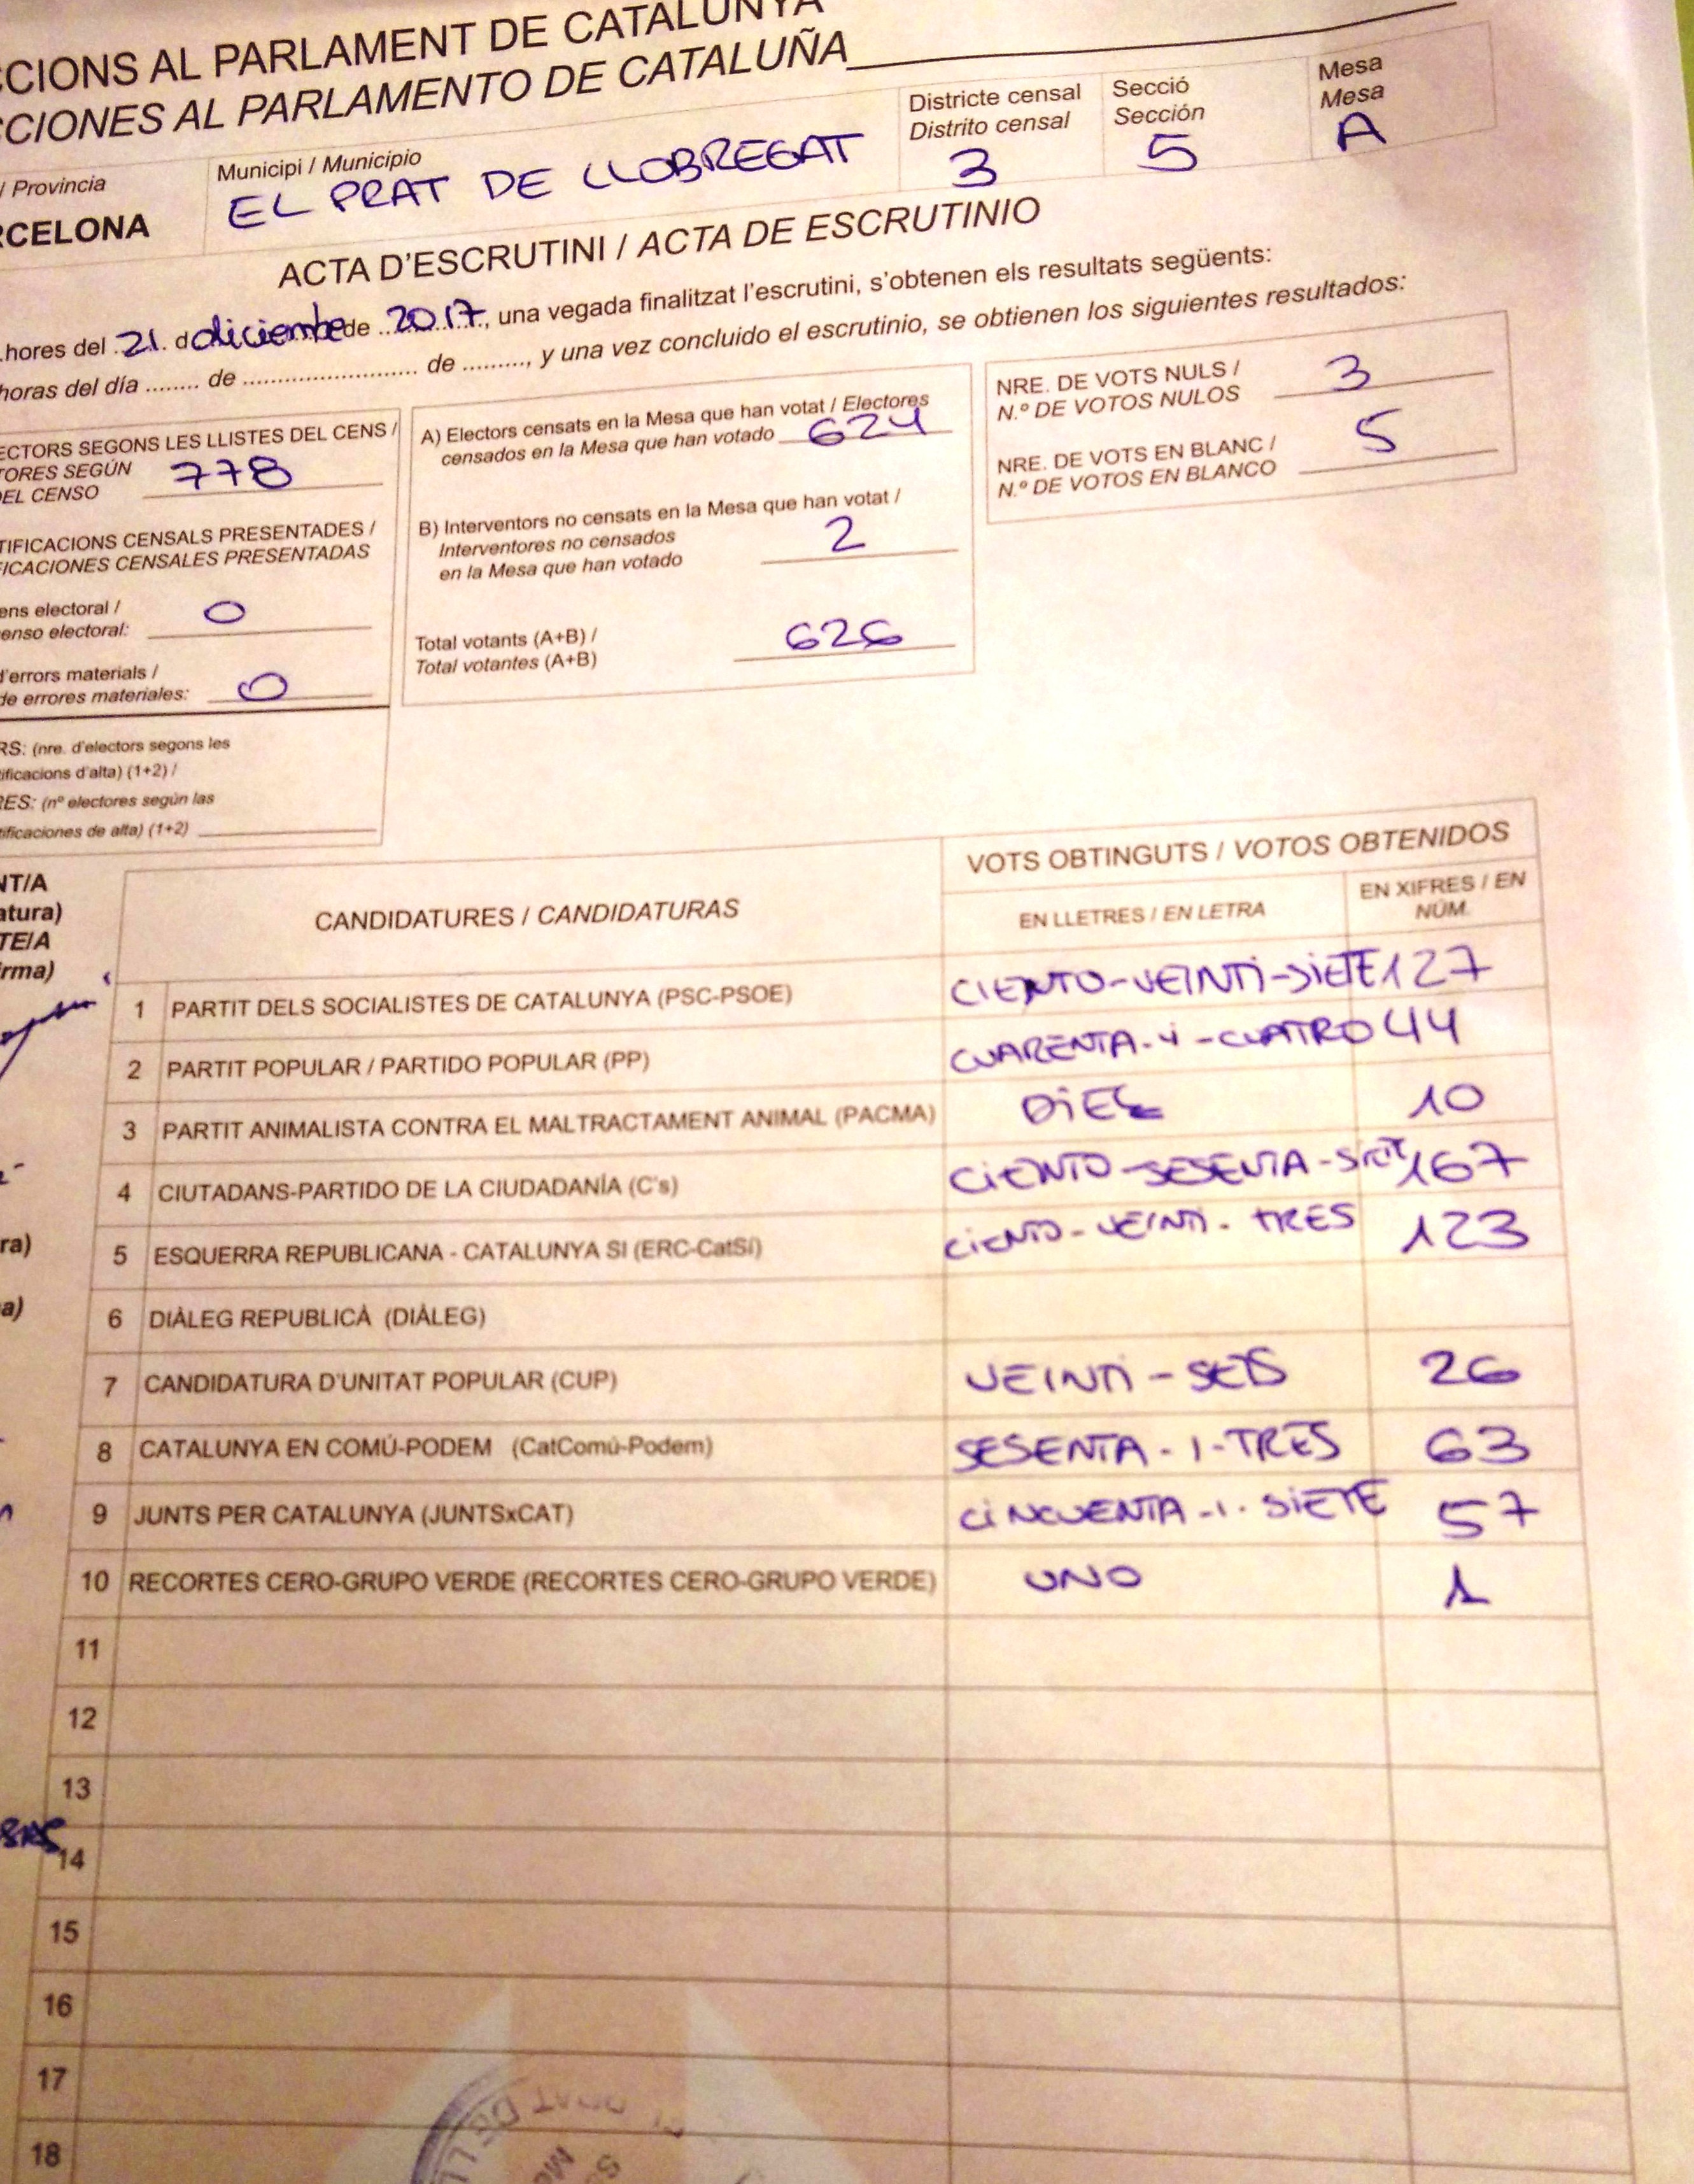 CCIONS AL PARLAMENT DE CATALUNYA
CCIONES AL PARLAMENTO DE CATALUÑA
/ Provincia
RCELONA
Municipi / Municipio
EL PRAT DE LLOBREGAT
Districte censal
Distrito censal
3
Secció
Sección
5
Mesa
Mesa
A
ACTA D'ESCRUTINI / ACTA DE ESCRUTINIO
hores del 21 d diciembre de 2017, una vegada finalitzat l'escrutini, s'obtenen els resultats següents:
horas del día ........ de ......................... de ........., y una vez concluido el escrutinio, se obtienen los siguientes resultados:
ECTORS SEGONS LES LLISTES DEL CENS /
TORES SEGÚN
DEL CENSO 778
TIFICACIONS CENSALS PRESENTADES /
FICACIONES CENSALES PRESENTADAS
ens electoral /
enso electoral: 0
d'errors materials /
de errores materiales: 0
RS: (nre. d'electors segons les
tificacions d'alta) (1+2) /
RES: (nº electores según las
tificaciones de alta) (1+2)
A) Electors censats en la Mesa que han votat / Electores
censados en la Mesa que han votado 624
B) Interventors no censats en la Mesa que han votat /
Interventores no censados
en la Mesa que han votado 2
Total votants (A+B) /
Total votantes (A+B) 626
NRE. DE VOTS NULS /
N.º DE VOTOS NULOS 3
NRE. DE VOTS EN BLANC /
N.º DE VOTOS EN BLANCO 5
NT/A
atura)
TE/A
irma)
ra)
a)
CANDIDATURES / CANDIDATURAS
VOTS OBTINGUTS / VOTOS OBTENIDOS
EN LLETRES / EN LETRA
EN XIFRES / EN
NÚM.
1 PARTIT DELS SOCIALISTES DE CATALUNYA (PSC-PSOE) CIENTO-VEINTI-SIETE 127
2 PARTIT POPULAR / PARTIDO POPULAR (PP) CUARENTA-Y-CUATRO 44
3 PARTIT ANIMALISTA CONTRA EL MALTRACTAMENT ANIMAL (PACMA) DIEZ 10
4 CIUTADANS-PARTIDO DE LA CIUDADANÍA (C's) CIENTO-SESENTA-SIETE 167
5 ESQUERRA REPUBLICANA - CATALUNYA SI (ERC-CatSí) CIENTO-VEINTI-TRES 123
6 DIÀLEG REPUBLICÀ (DIÀLEG)
7 CANDIDATURA D'UNITAT POPULAR (CUP) VEINTI-SEIS 26
8 CATALUNYA EN COMÚ-PODEM (CatComú-Podem) SESENTA-I-TRES 63
9 JUNTS PER CATALUNYA (JUNTSxCAT) CINCUENTA-I-SIETE 57
10 RECORTES CERO-GRUPO VERDE (RECORTES CERO-GRUPO VERDE) UNO 1
11
12
13
14
15
16
17
18